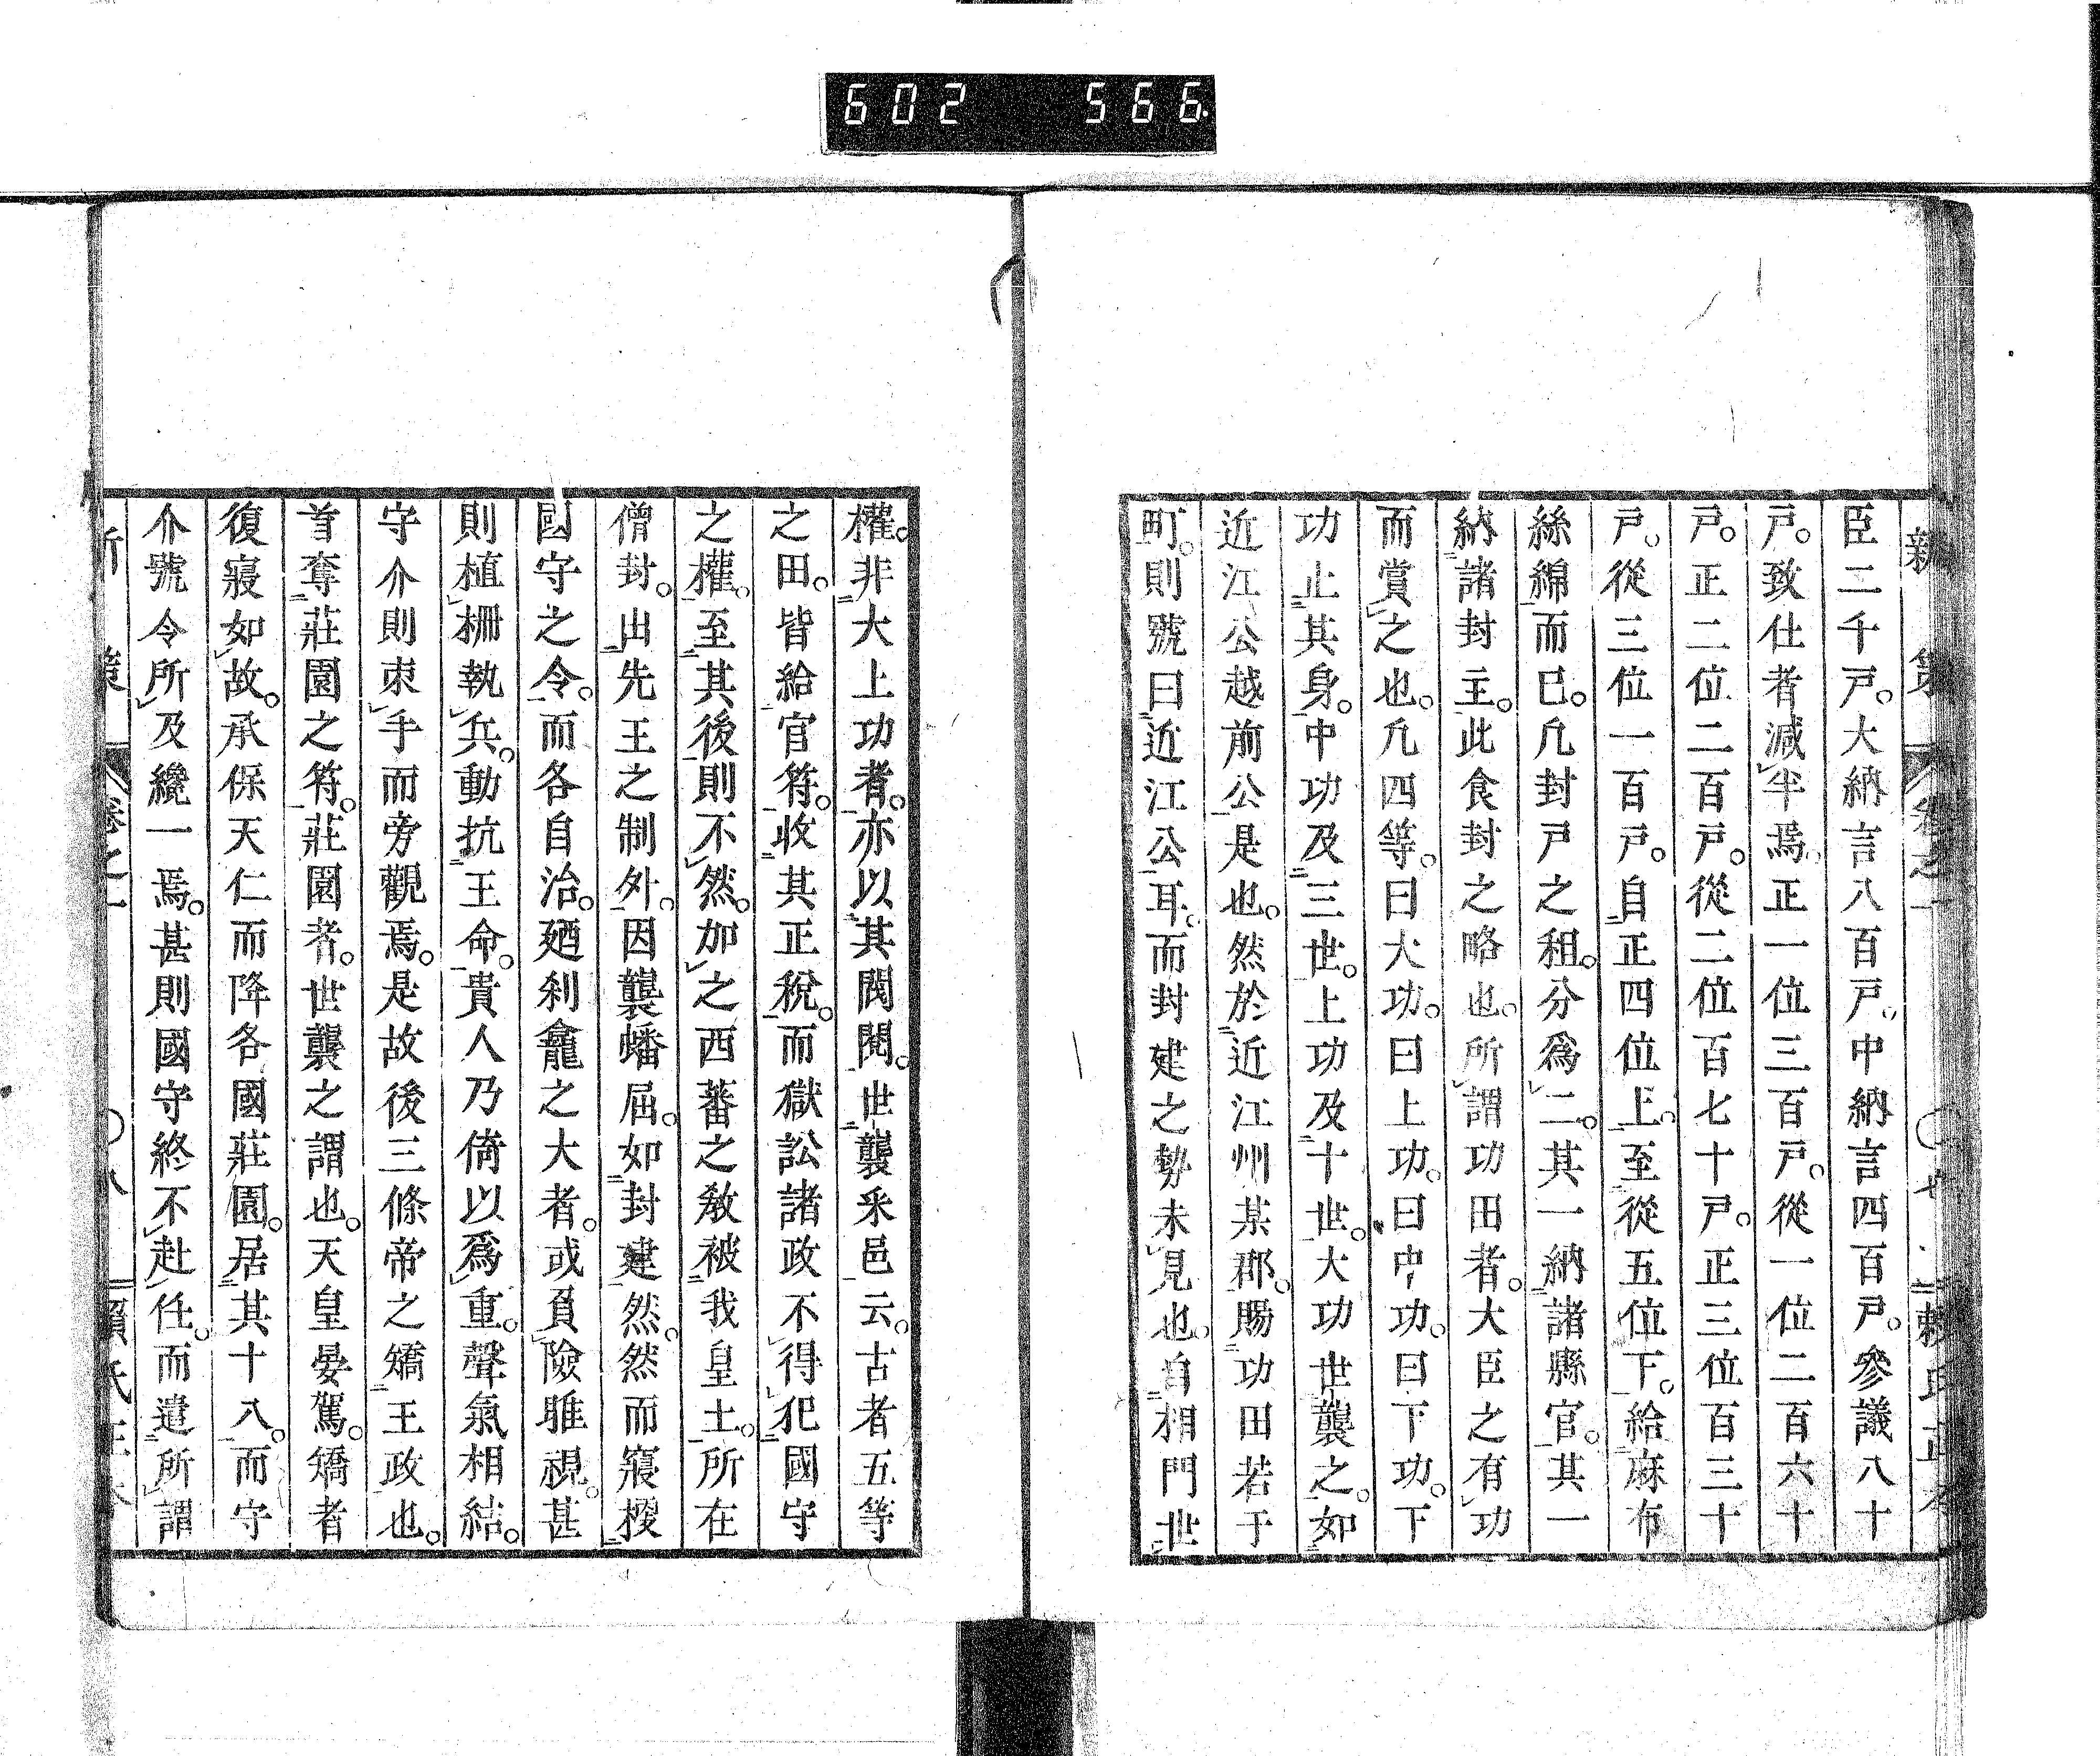 602 566
新策 卷之一 ○七 賴氏正本
臣二千戸。大納言八百戸。中納言四百戸。參議八十
戸。致仕者減半焉。正一位三百戸。從一位二百六十
戸。正二位二百戸。從二位百七十戸。正三位百三十
戸。從三位一百戸。自正四位上。至從五位下。給麻布
絲綿而已。凡封戸之租。分爲二。其一納諸縣官。其一
納諸封主。此食封之略也。所謂功田者。大臣之有功
而賞之也。凡四等。曰大功。曰上功。曰中功。曰下功。下
功止其身。中功及三世。上功及十世。大功世襲之。如
近江公越前公是也。然於近江州某郡。賜功田若于
町。則號曰近江公耳。而封建之勢未見也。自相門世
權。非大上功者。亦以其閥閱。世襲釆邑云。古者五等
之田。皆給官符。收其正稅。而獄訟諸政不得犯國守
之權。至其後則不然。加之西蕃之敎被我皇土。所在
僧封。出先王之制外。因襲蟠屈。如封建然。然而寢撓
國守之令。而各自治。廼刹龕之大者。或負險雄視。甚
則植柵執兵。動抗王命。貴人乃倚以爲重。聲氣相結。
守介則束手而旁觀焉。是故後三條帝之矯王政也。
首奪莊園之符。莊園者。世襲之謂也。天皇晏駕。矯者
復寢如故。承保天仁而降各國莊園。居其十八。而守
介號令所及纔一焉。甚則國守終不赴任。而遣所謂
新策 卷之一 ○八 賴氏正本